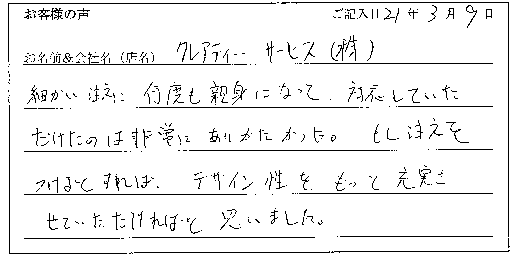 お客様の声 ご記入日 21年 3月 9日
お名前&会社名（店名） クレアティー サービス（株）
細かい注文に 何度も親身になって、対応していた
だけたのは非常に ありがたかった。 もし注文を
つけるとすれば、 デザイン性を もっと充実さ
せていただければと 思いました。